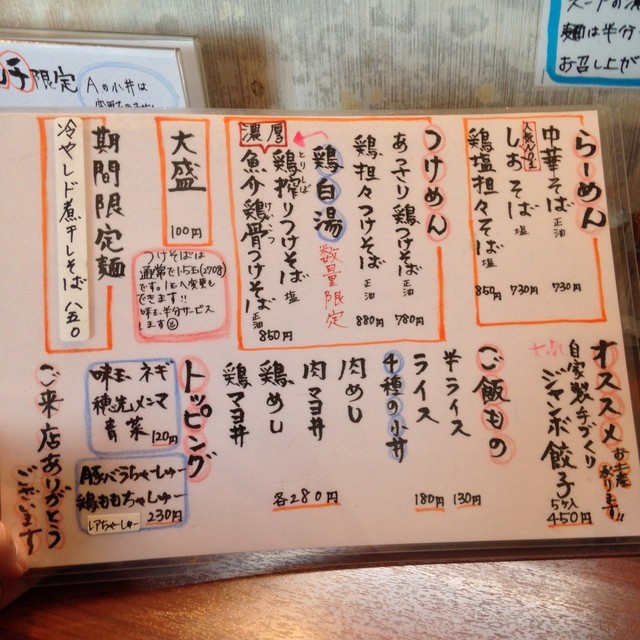 限定
Aの小丼は
麺は半分
お召し上が
らーめん
中華そば 正油
730円
人気No.1
しおそば 塩
730円
鶏塩担々そば 塩
850円
つけめん
あっさり鶏つけそば 正油
780円
鶏担々つけそば 正油
880円
鶏白湯 数量限定
濃厚
とりしぼ
鶏搾りつけそば 塩
魚介鶏骨つけそば 正油
850円
大盛
100円
つけそばは
通常で1.5玉(270g)
です。1玉へ変更も
できます!!
味玉半分サービス
します
期間限定麺
冷やしド煮干しそば 八五〇
オススメ
お土産
承ります!!
自家製手づくり
ジャンボ餃子
5ケ入
450円
ご飯もの
半ライス
130円
ライス
180円
4種の小丼
肉めし
肉マヨ丼
鶏めし
鶏マヨ丼
各280円
トッピング
味玉 ネギ
穂先メンマ
青菜 120円
豚バラちゃーしゅー
鶏ももちゃしゅー
レアちゃーしゅー 230円
ご来店ありがとう
ございます